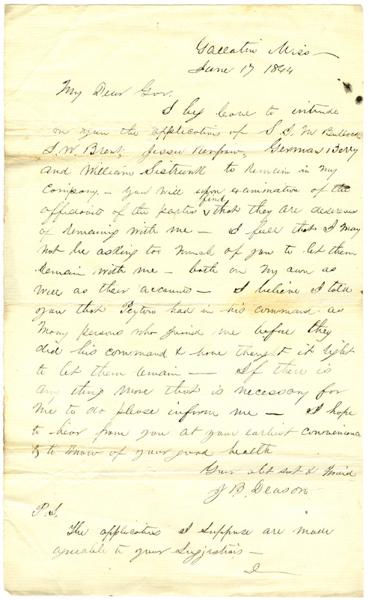 Gallatin Miss
June 17 1864
My Dear Gov.
I beg leave to intrude
on you the application of S. S. M Bullock
J. W. Brent, Jesse Renfrow, German Berry
and William Sistrunk to remain in my
Company — You will upon examination of the
affidavit of the parties find that they are desirous
of remaining with me — I feel that I may
not be asking too much of you to let them
remain with me — both on my own as
well as their accounts — I believe I told
you that Peyton had in his command as
many persons who joined me before they
did his command & have thought it right
to let them remain — If there is
any thing more that is necessary for
me to do please inform me — I hope
to hear from you at your earliest convenience
& to know of your good health
Your obt svt & friend
J B. Deason
P.S.
The applications I suppose are made
agreeable to your suggestions —
D